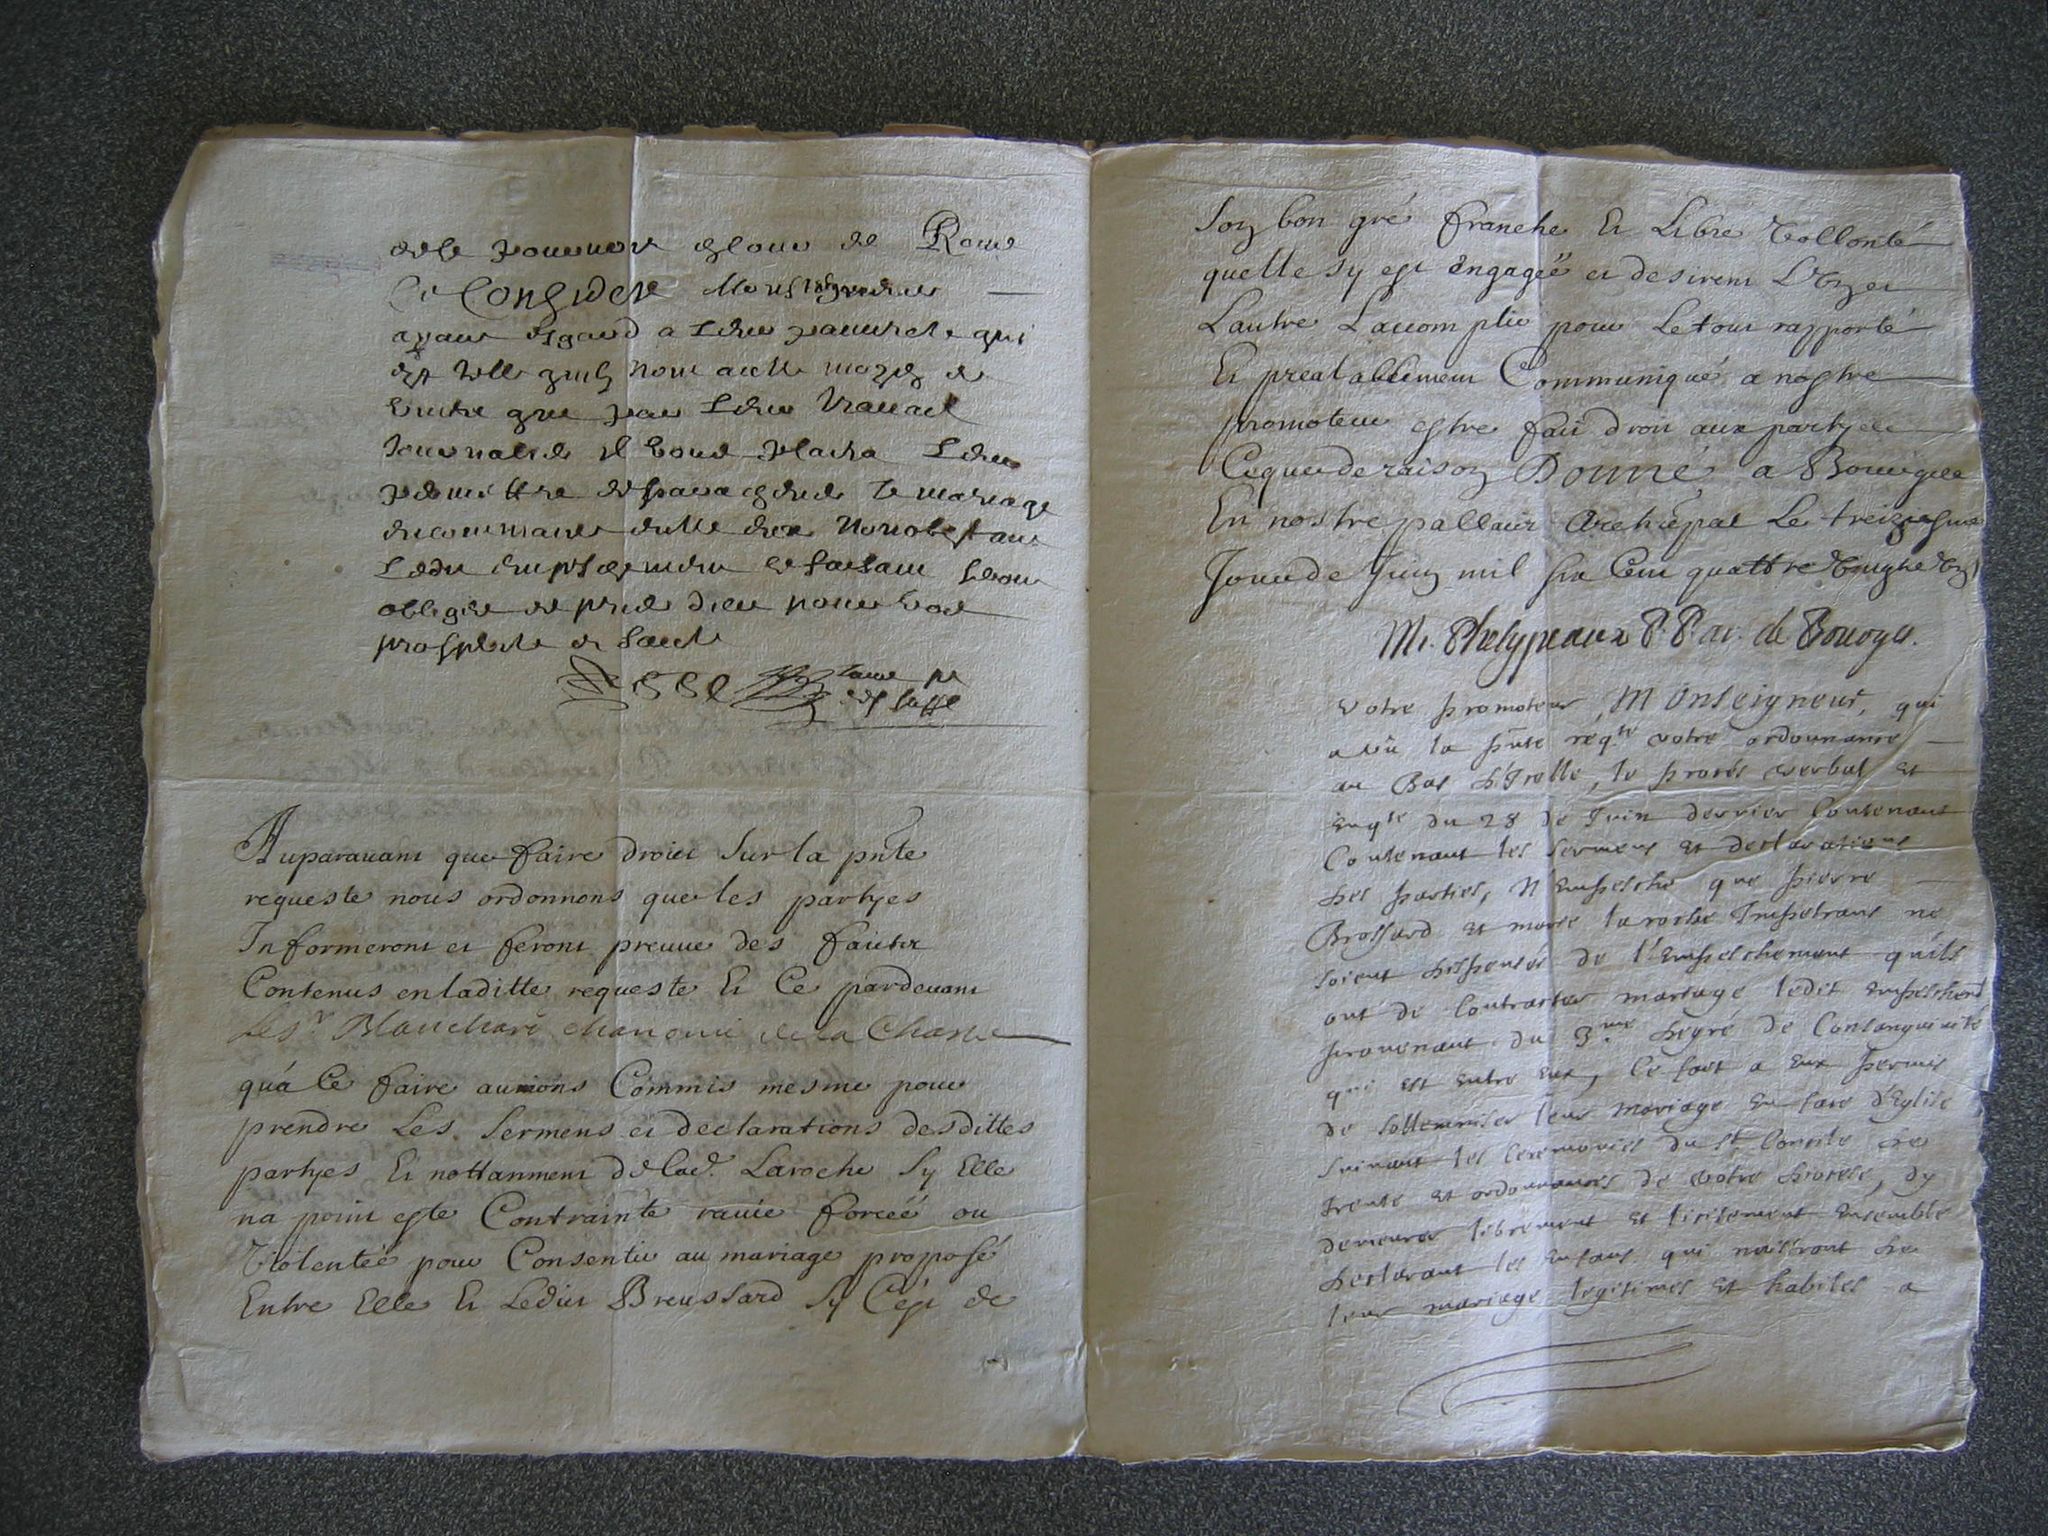 de se pourvoir en cour de Rome
Ce Considere Monseigneur
ayant esgard a leur pauvrete qui
est telle quils nont aulle moyen de
vivre que par leur travail
Journalier il vous plaira leur
permettre de faire le mariage
nonobstant
obliges de prier dieu pour vostre
prosperite et sante
Auparauant que faire droict sur la pnte
requeste nous ordonnons que les partyes
Informeront et feront preuue des faicts
Contenus en laditte requeste Et Ce pardeuant
le Sr Blanchard chanoine de la Chastre
qu'a Ce faire auuons Commis mesme pour
prendre Les sermens et declarations desdittes
partyes Et nottanment de lad. Laroche sy Elle
na point este Contrainte rauie forceé ou
Violentée pour Consentir au mariage proposé
Entre Elle Et Ledict Breussard sy C'est de
son bon gré franche Et Libre Vollonté
quelle sy est Engageé et desirent L'Vn et
Lautre Laccomplir pour Le tout rapporté
Et prealablement Communiqué a nostre
promoteur estre faict droit aux partyes
Ce que de raison Donné a Bourges
En nostre pallais Archiepal Le treiziesme
Jour de Juin mil six Cent quattre Vingts Vn
M. Phelypeaux P. P. ar. de Bourges.
votre promoteur, Monseigneur, qui
a vû la pnte reqte votre ordonnance
au Bas d'Icelle, le procès verbal et
enqte du 28 de Juin dernier Contenant
Contenant les sermens et declarations
des parties, N'Empesche que pierre
Brossard et marie laroche Impetrans ne
soient dispenses de l'Empeschement qu'ils
ont de Contracter mariage ledit empeschent
provenant du 3.me degré de Consanguinité
qui est entre eux, Ce fait a eux permis
de sollemniser leur mariage En face d'Eglise
suivant les Ceremonies du St. Concile de
trente et ordonnances de votre diocese, dy
demeurer librement et licitement Ensemble
declarant les Enfans qui naistront de
leur mariage legitimes et habiles a